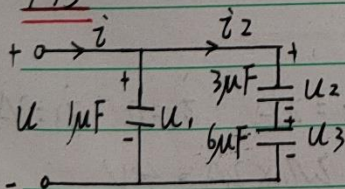 i i2
+ +
+ 3μF U2
-
U 1μF U1 +
- 6μF U3
-
-